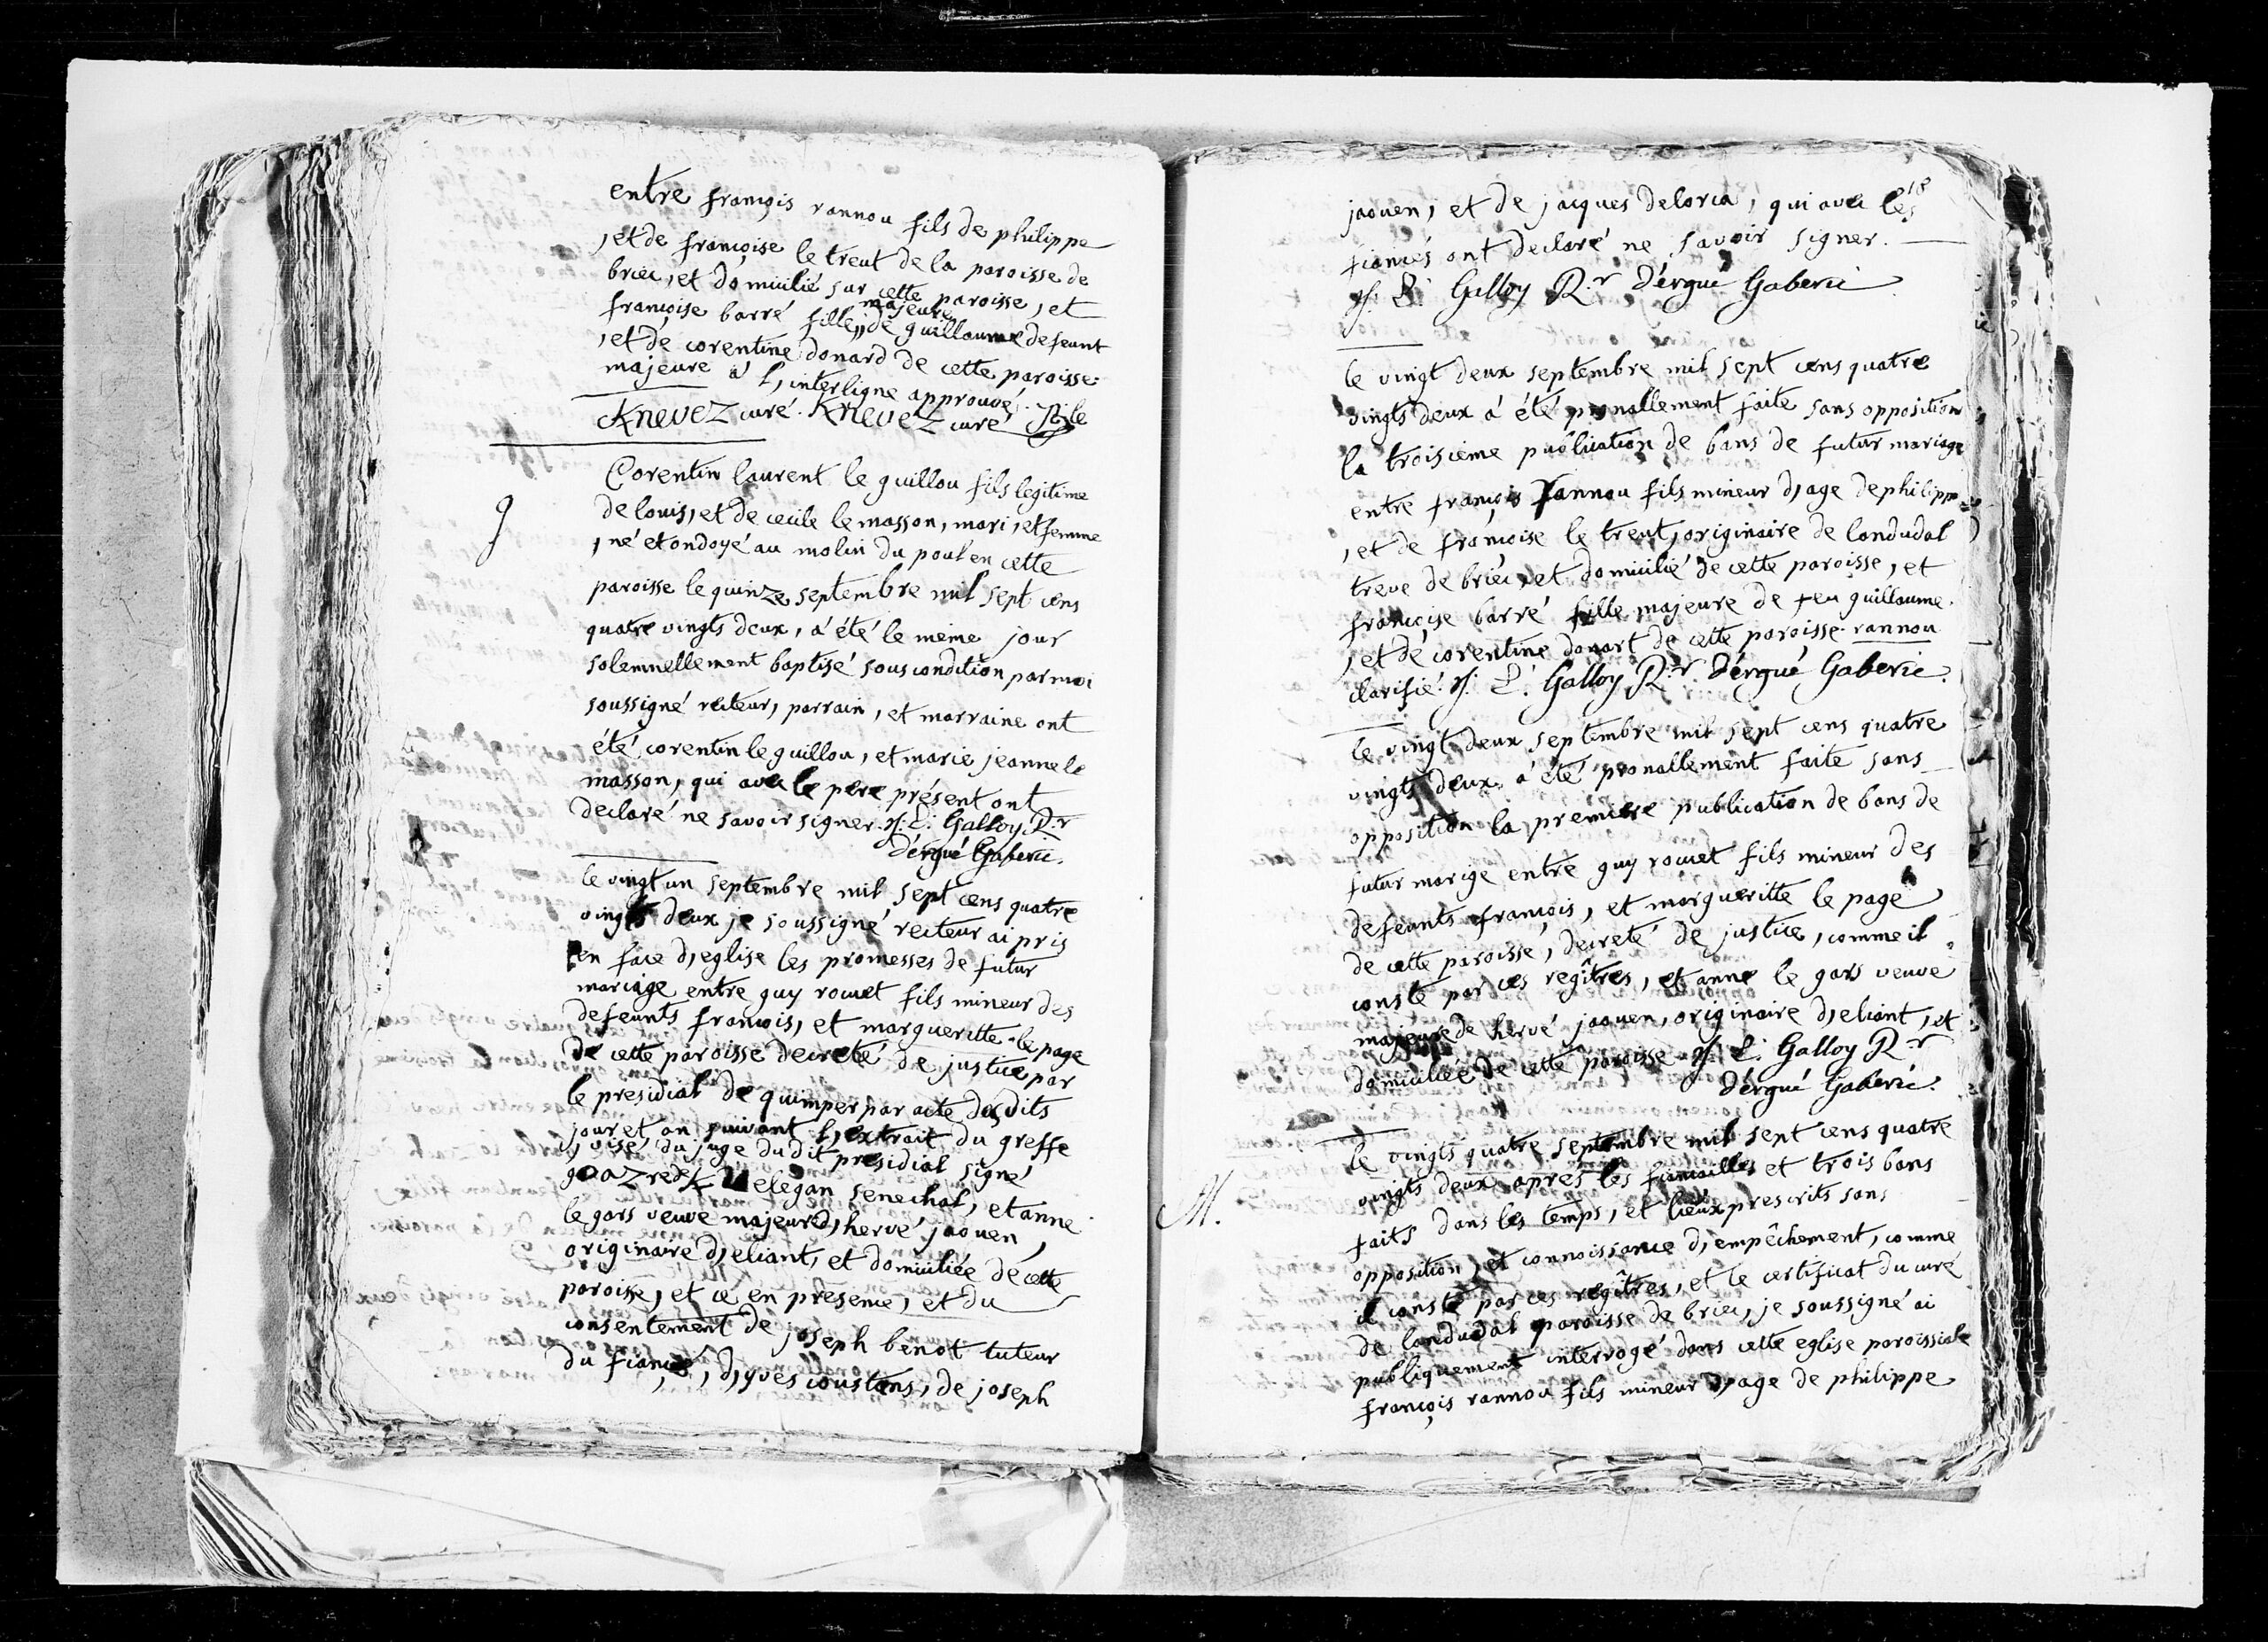 entre françois rannou fils de philippe
, et de françoise le treut de la paroisse de
briec, et domicilié sur cette paroisse, et
majeure
françoise barré fille,, de guillaume defeunt
, et de corentine donard de cette paroisse
majeure a l, interligne approuvé.
Knevez curé. Knevez curé
Corentin laurent le guillou fils legitime
g
de louis, et de cecile le masson, mari, et femme
, né et ondoyé au molin du poul en cette
paroisse le quinze septembre mil sept cens
quatre vingts deux, a été le même jour
solemnellement baptisé sous condition par moi
soussigné recteur, parrain, et marraine ont
été corentin le guillou, et marie jeanne le
masson, qui avec le pere présent ont
declaré ne savoir signer. Galloy R.r
dérgué Gaberic.
le vingt un septembre mil sept cens quatre
vingts deux je soussigné recteur ai pris
en face d, eglise les promesses de futur
mariage entre guy rouet fils mineur des
defeunts françois, et margueritte le page
de cette paroisse decreté de justice par
le presidial de quimper par acte desdits
jour et an suivant l, extrait du greffe
, visé du juge dudit presidial signé
goazre de K velegan senechal, et anne
le gars veuve majeure d, hervé jaouen,
originaire d, eliant, et domiciliée de cette
paroisse, et ce en presence, et du
consentement de joseph benot tuteur
du fiancé, d, yves coustans, de joseph
18
jaouen, et de jacques deloria, qui avec les
fiancés ont declaré ne savoir signer.
Galloy R.r dérgué Gaberic
le vingt deux septembre mil sept cens quatre
vingts deux a été pronallement faite sans opposition
la troisième publication de bans de futur mariage
entre françois rannou fils mineur d, age de philippe
, et de françoise le treut, originaire de landudal
treve de briec, et domicilié de cette paroisse, et
françoise barré fille majeure de feu guillaume
, et de corentine donart de cette paroisse. rannou
clarifié. Galloy R.r dérgué Gaberic.
le vingt deux septembre mil sept cens quatre
vingts deux a été pronallement faite sans
opposition la premiere publication de bans de
futur marige entre guy rouet fils mineur des
defeunts françois, et margueritte le page
de cette paroisse, decreté de justice, comme il
conste par ces regîtres, et anne le gars veuve
majeure de hervé jaouen, originaire d, eliant, et
domiciliée de cette paroisse Galloy R.r
dérgué Gaberic.
le vingts quatre septembre mil sept cens quatre
vingts deux apres les fiancailles et trois bans
M.
faits dans les temps, et lieux prescrits sans
opposition, et connoissance d, empêchement, comme
il conste par ces regîtres, et le certificat du curé
de landudal paroisse de briec, je soussigné ai
publiquement interrogé dans cette eglise paroissiale
françois rannou fils mineur d, age de philippe